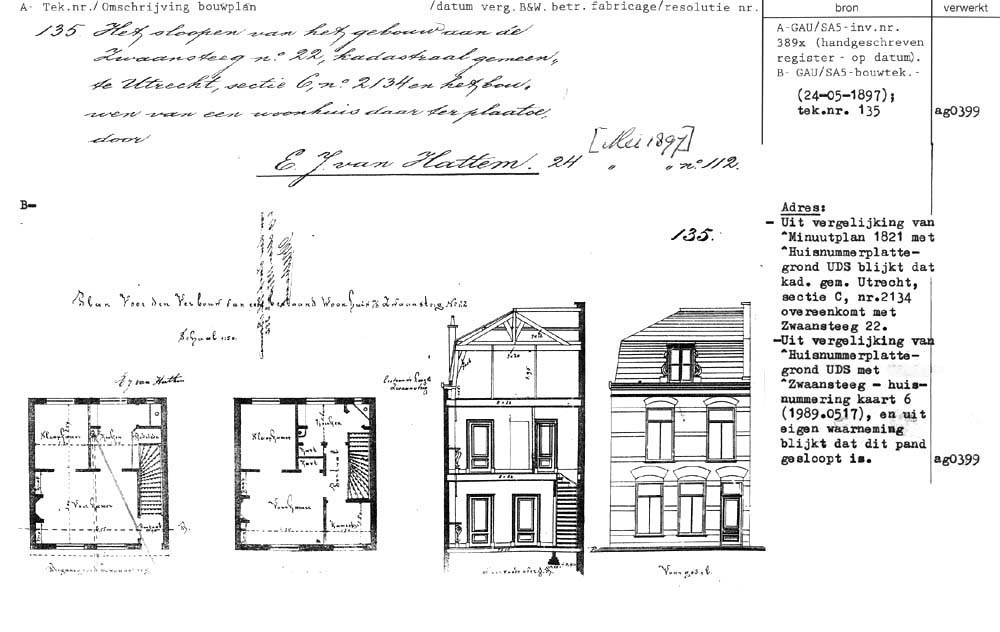 A- Tek.nr./Omschrijving bouwplan /datum verg.B&W.betr.fabricage/resolutie nr. bron verwerkt
135 Het sloopen van het gebouw aan de
Zwaansteeg no. 22, kadastraal gemeen-
te Utrecht, sectie C, no. 2134 en het bou-
wen van een woonhuis daar ter plaatse,
door
[Mei 1897]
E. J. van Hattem. 24 " " no. 112.
A-GAU/SA5-inv.nr.
389x (handgeschreven
register - op datum).
B- GAU/SA5-bouwtek.-
(24-05-1897);
tek.nr. 135 ag0399
B-
135.
Plan Voor den Verbouw van een bestaand Woonhuis Zwaansteeg No 22
Schaal 1:50.
E J van Hattem
Slaapkamer
Keuken
Voorkamer
Slaapkamer
Keuken
Kast
Kast
Voorkamer
Voorgevel
Adres:
- Uit vergelijking van
^Minuutplan 1821 met
^Huisnummerplatte-
grond UDS blijkt dat
kad. gem. Utrecht,
sectie C, nr.2134
overeenkomt met
Zwaansteeg 22.
-Uit vergelijking van
^Huisnummerplatte-
grond UDS met
^Zwaansteeg - huis-
nummering kaart 6
(1989.0517), en uit
eigen waarneming
blijkt dat dit pand
gesloopt is. ag0399